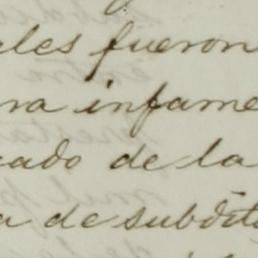 ales fueron
ra infame
cado de la
a de subdito